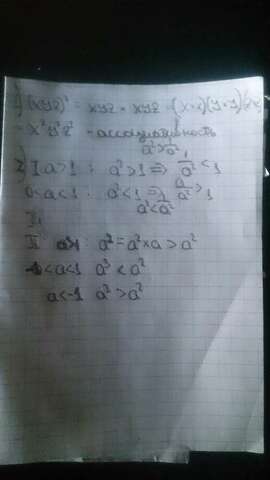 1) (xyz)² = xyz * xyz = (x*x)(y*y)(z*z)
= x²y²z² - ассоциативность
a²>1/a²
2) I a>1 : a²>1 => 1/a² < 1
0<a<1 : a²<1 => 1/a² > 1
a²<1/a²
II a>1: a³=a²×a>a²
<a<1 a³<a²
a<-1 a³>a²